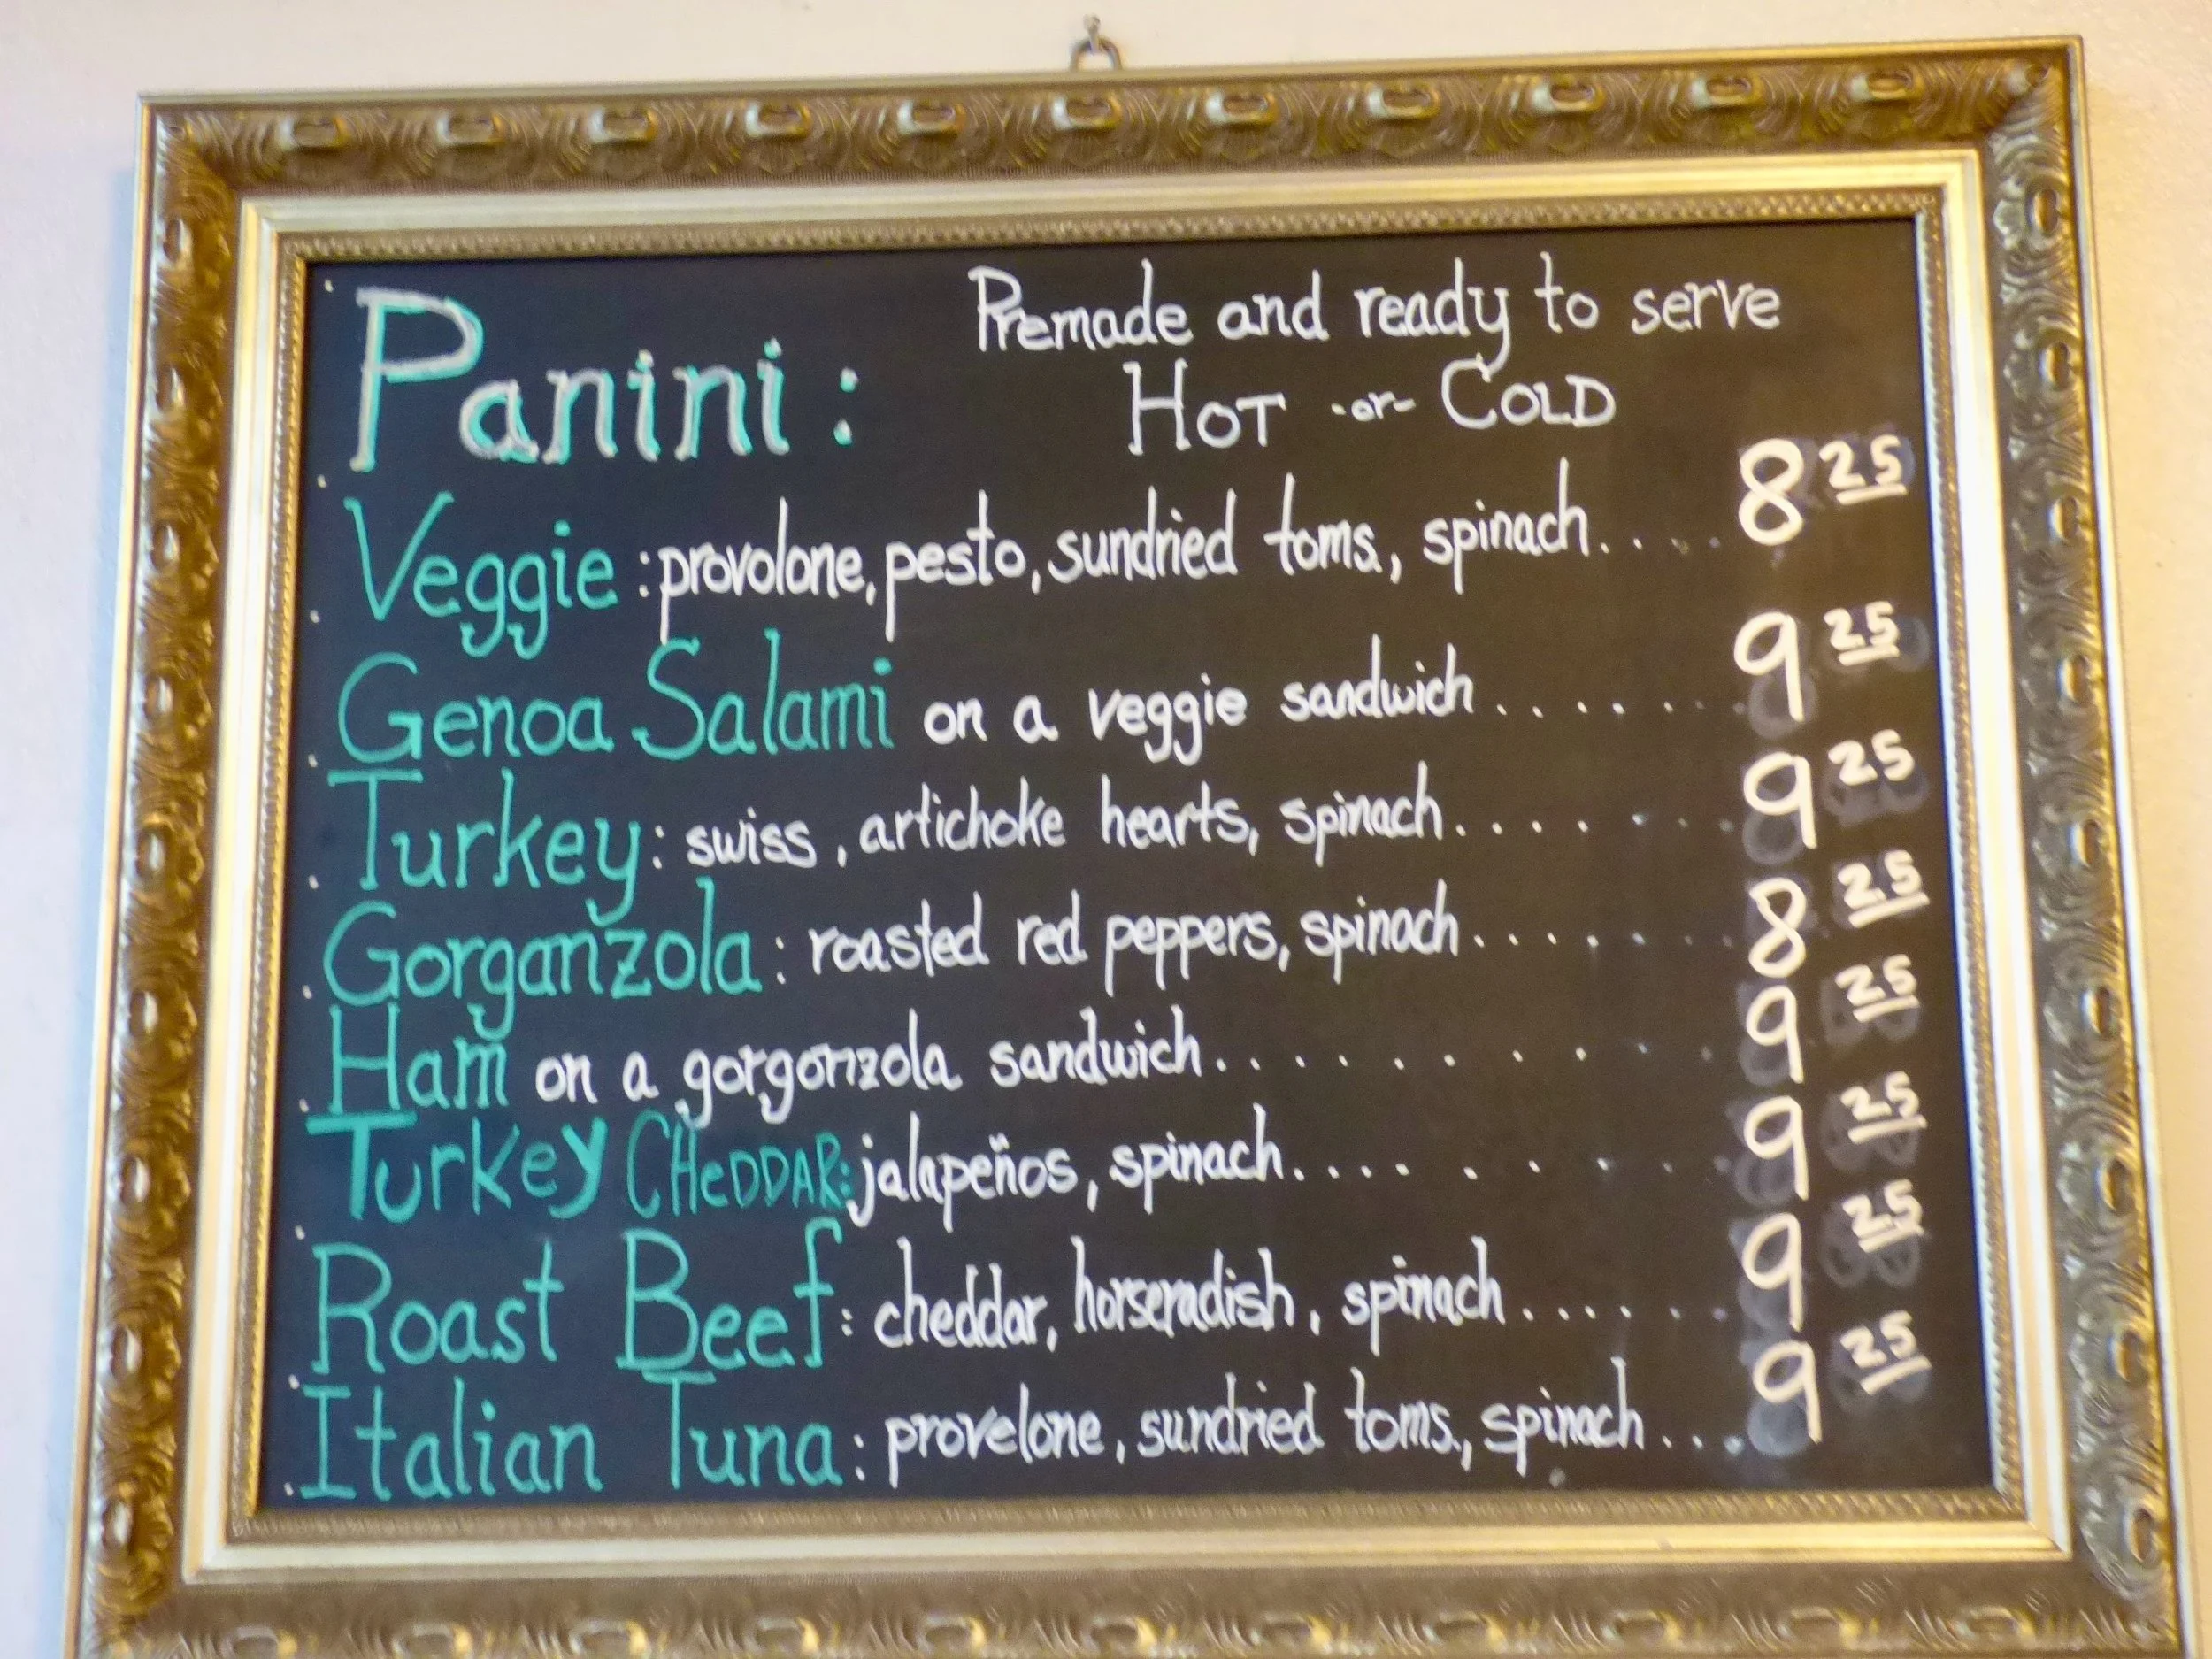 Panini: Premade and ready to serve
HOT -or- COLD
Veggie: provolone, pesto, sundried toms., spinach.... 8 25
Genoa Salami on a veggie sandwich....... 9 25
Turkey: swiss, artichoke hearts, spinach....... 9 25
Gorganzola: roasted red peppers, spinach....... 8 25
Ham on a gorgonzola sandwich......... 9 25
Turkey CHeDDAR: jalapeños, spinach......... 9 25
Roast Beef: cheddar, horseradish, spinach...... 9 25
Italian Tuna: provelone, sundried toms., spinach... 9 25